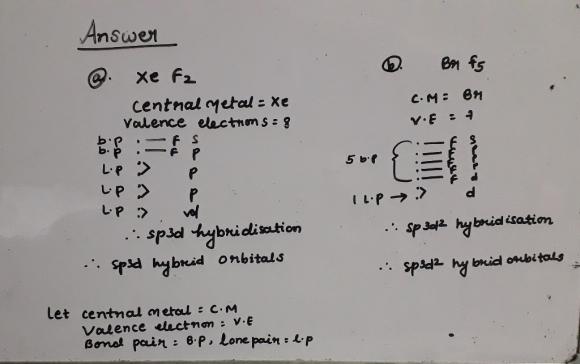 Answer
ⓐ. XeF2
Central metal = Xe
Valence electrons = 8
b.p :— F s
b.p :— F p
L.P :> p
L.P :> p
L.P :>
∴ sp3d hybridisation
∴ sp3d hybrid orbitals
ⓑ. Br f5
C.M = Br
V.E = 7
5 b.p
:— F s
:— F
:— F
:— F
:— F d
1 L.P → :> d
∴ sp3d² hybridisation
∴ sp3d² hybrid orbitals
Let central metal = C.M
Valence electron = V.E
Bond pair = B.P, lone pair = l.p